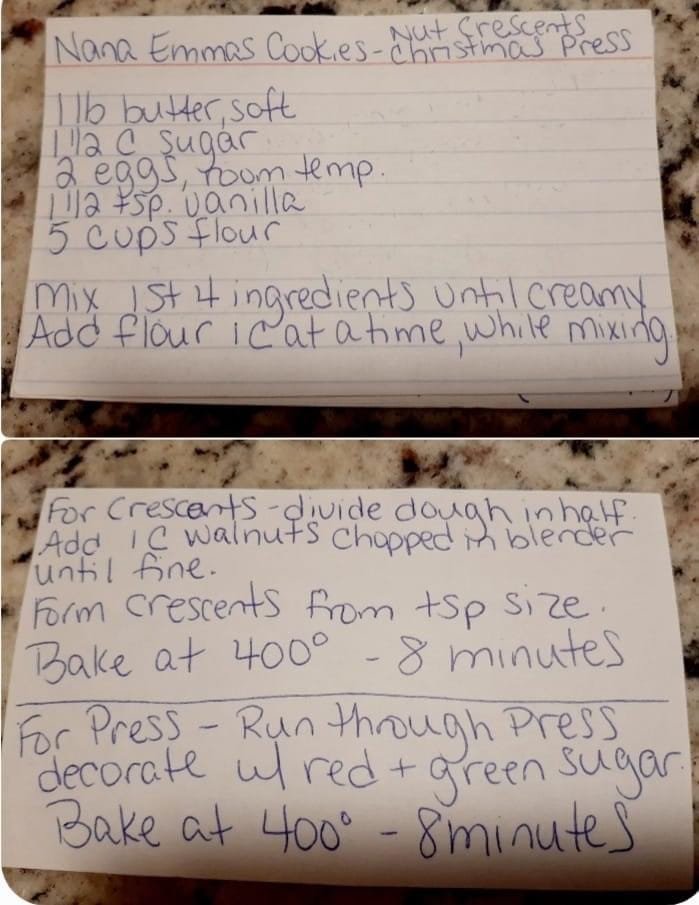 Nana Emmas Cookies - Nut Crescents
Christmas Press
1 lb butter, soft
1 1/2 C sugar
2 eggs, room temp.
1 1/2 tsp. vanilla
5 cups flour
Mix 1st 4 ingredients until creamy
Add flour 1C at a time, while mixing
For Crescents - divide dough in half.
Add 1 C walnuts chopped in blender
until fine.
Form crescents from tsp size.
Bake at 400° - 8 minutes
For Press - Run through Press
decorate w/ red + green sugar.
Bake at 400° - 8 minutes